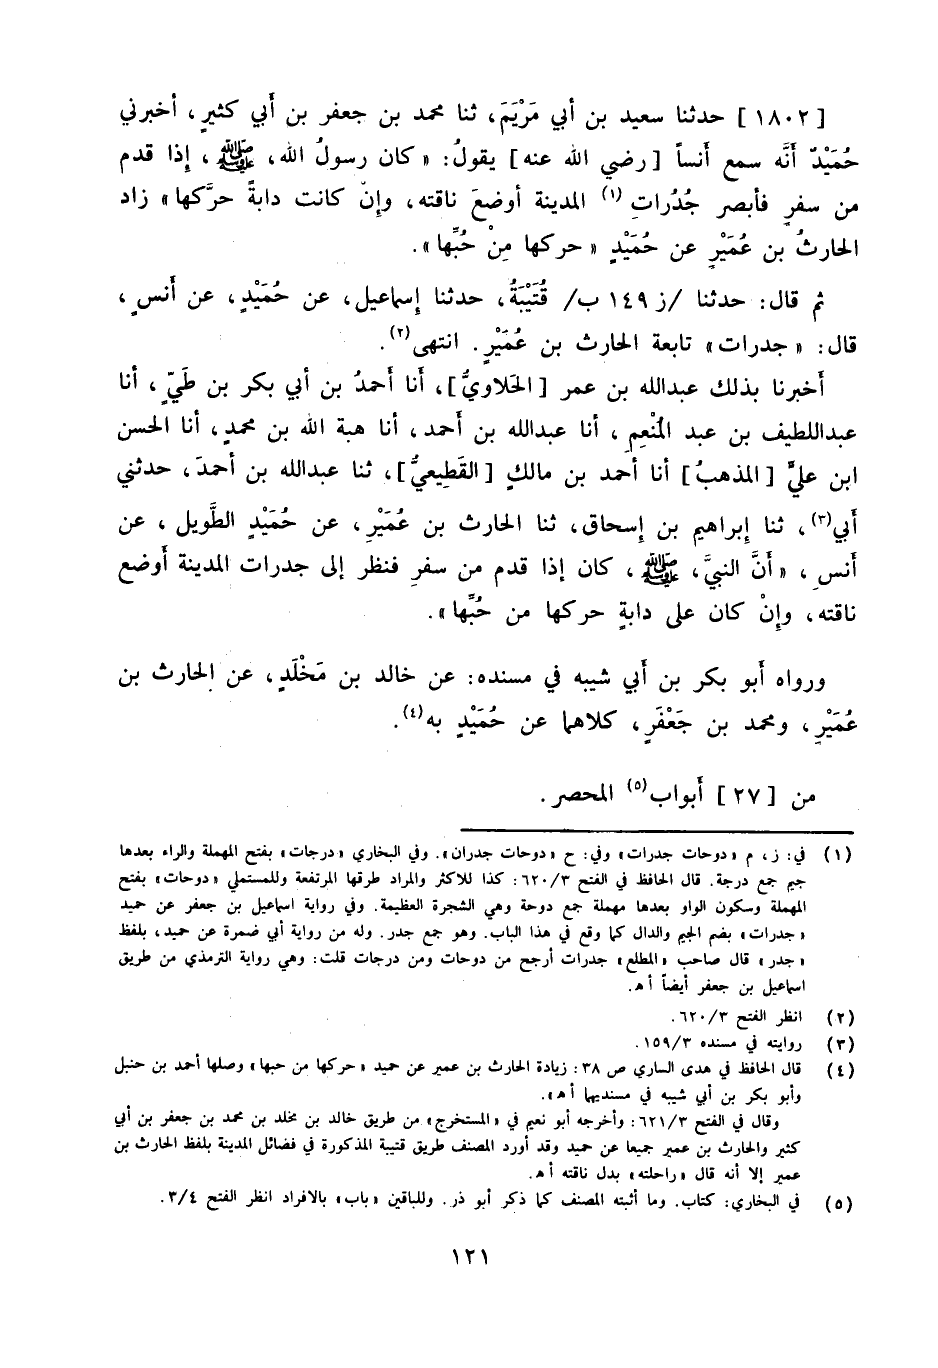 [ ١٨٠٢ ] حدثنا سعيد بن أبي مَرْيَمَ، ثنا محمد بن جعفر بن أَبي كثيرٍ، أخبرني
حُمَيْدٌ أَنَّه سمع أَنساً [ رضي الله عنه ] يقولُ: « كان رسولُ الله، ﷺ، إِذا قدم
من سفرٍ فأبصر جُدُراتِ (١) المدينة أوضعَ ناقته، وإِنْ كانت دابةً حرَّكها » زاد
الحارثُ بن عُمَيْرٍ عن حُمَيْدٍ « حركها مِنْ حُبِّها ».
ثم قال: حدثنا /ز ١٤٩ ب/ قُتَيْبَةُ، حدثنا إِسماعيل، عن حُمَيْدٍ، عن أَنسٍ،
قال: « جدرات » تابعة الحارث بن عُمَيْرٍ. انتهى(٢).
أَخبرنا بذلك عبدالله بن عمر [ الحَلاويُّ]، أَنا أَحمدُ بن أبي بكر بن طَيّ، أنا
عبداللطيف بن عبد المُنْعِمِ، أنا عبدالله بن أَحمد، أنا هبة الله بن محمدٍ، أنا الحسن
ابن عليٍّ [ المذهبُ ] أنا أحمد بن مالكٍ [ القَطِيعيُّ]، ثنا عبدالله بن أحمدَ، حدثني
أَبي(٣)، ثنا إِبراهيم بن إِسحاق، ثنا الحارث بن عُمَيْرٍ، عن حُمَيْدٍ الطَّويل، عن
أَنسٍ، « أَنَّ النبيَّ، ﷺ، كان إذا قدم من سفرٍ فنظر إلى جدرات المدينة أَوضع
ناقته، وإِنْ كان على دابةٍ حركها من حُبِّها ».
ورواه أَبو بكر بن أَبي شيبه في مسنده: عن خالد بن مَخْلَدٍ، عن الحارث بن
عُمَيْرٍ، ومحمد بن جَعْفَرٍ، كلاهما عن حُمَيْدٍ به(٤).
من [ ٢٧ ] أَبواب(٥) المحصر.
(١) في: ز، م « دوحات جدرات » وفي: ح « دوحات جدران ». وفي البخاري « درجات » بفتح المهملة والراء بعدها
جيم جمع درجة. قال الحافظ في الفتح ٦٢٠/٣: كذا للاكثر والمراد طرقها المرتفعة وللمستملي « دوحات » بفتح
المهملة وسكون الواو بعدها مهملة جمع دوحة وهي الشجرة العظيمة. وفي رواية اسماعيل بن جعفر عن حميد
« جدرات » بضم الجيم والدال كما وقع في هذا الباب. وهو جمع جدر. وله من رواية أبي ضمرة عن حميد، بلفظ
« جدر » قال صاحب « المطلع » جدرات أرجح من دوحات ومن درجات قلت: وهي رواية الترمذي من طريق
اسماعيل بن جعفر أيضاً أ هـ.
(٢) انظر الفتح ٦٢٠/٣.
(٣) روايته في مسنده ١٥٩/٣.
(٤) قال الحافظ في هدى الساري ص ٣٨: زيادة الحارث بن عمير عن حميد « حركها من حبها » وصلها أحمد بن حنبل
وأبو بكر بن أبي شيبه في مسنديهما أ هـ ».
وقال في الفتح ٦٢١/٣: وأخرجه أبو نعيم في « المستخرج » من طريق خالد بن مخلد بن محمد بن جعفر بن أبي
كثير والحارث بن عمير جميعا عن حميد وقد أورد المصنف طريق قتيبة المذكورة في فضائل المدينة بلفظ الحارث بن
عمير إلا أنه قال « راحلته » بدل ناقته أ هـ.
(٥) في البخاري: كتاب. وما أثبته المصنف كما ذكر أبو ذر. وللباقين « باب » بالافراد انظر الفتح ٣/٤.
١٢١